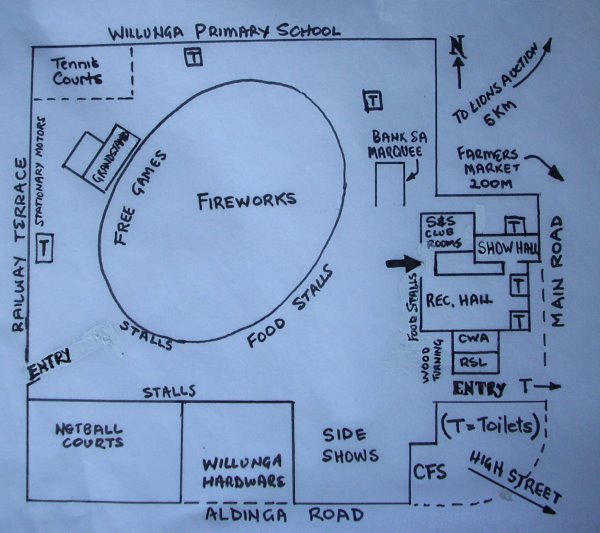 WILLUNGA PRIMARY SCHOOL
N
Tennis
Courts
T
T
TO LIONS AUCTION
5KM
STATIONARY MOTORS
GRANDSTAND
FREE GAMES
FIREWORKS
BANK SA
MARQUEE
FARMERS
MARKET
200M
RAILWAY TERRACE
T
S&S
CLUB
ROOMS
T
SHOW HALL
MAIN ROAD
FOOD STALLS
REC. HALL
T
T
STALLS
FOOD STALLS
WOOD
TURNING
CWA
RSL
ENTRY
ENTRY T
STALLS
NETBALL
COURTS
WILLUNGA
HARDWARE
SIDE
SHOWS
(T=Toilets)
CFS
HIGH STREET
ALDINGA ROAD